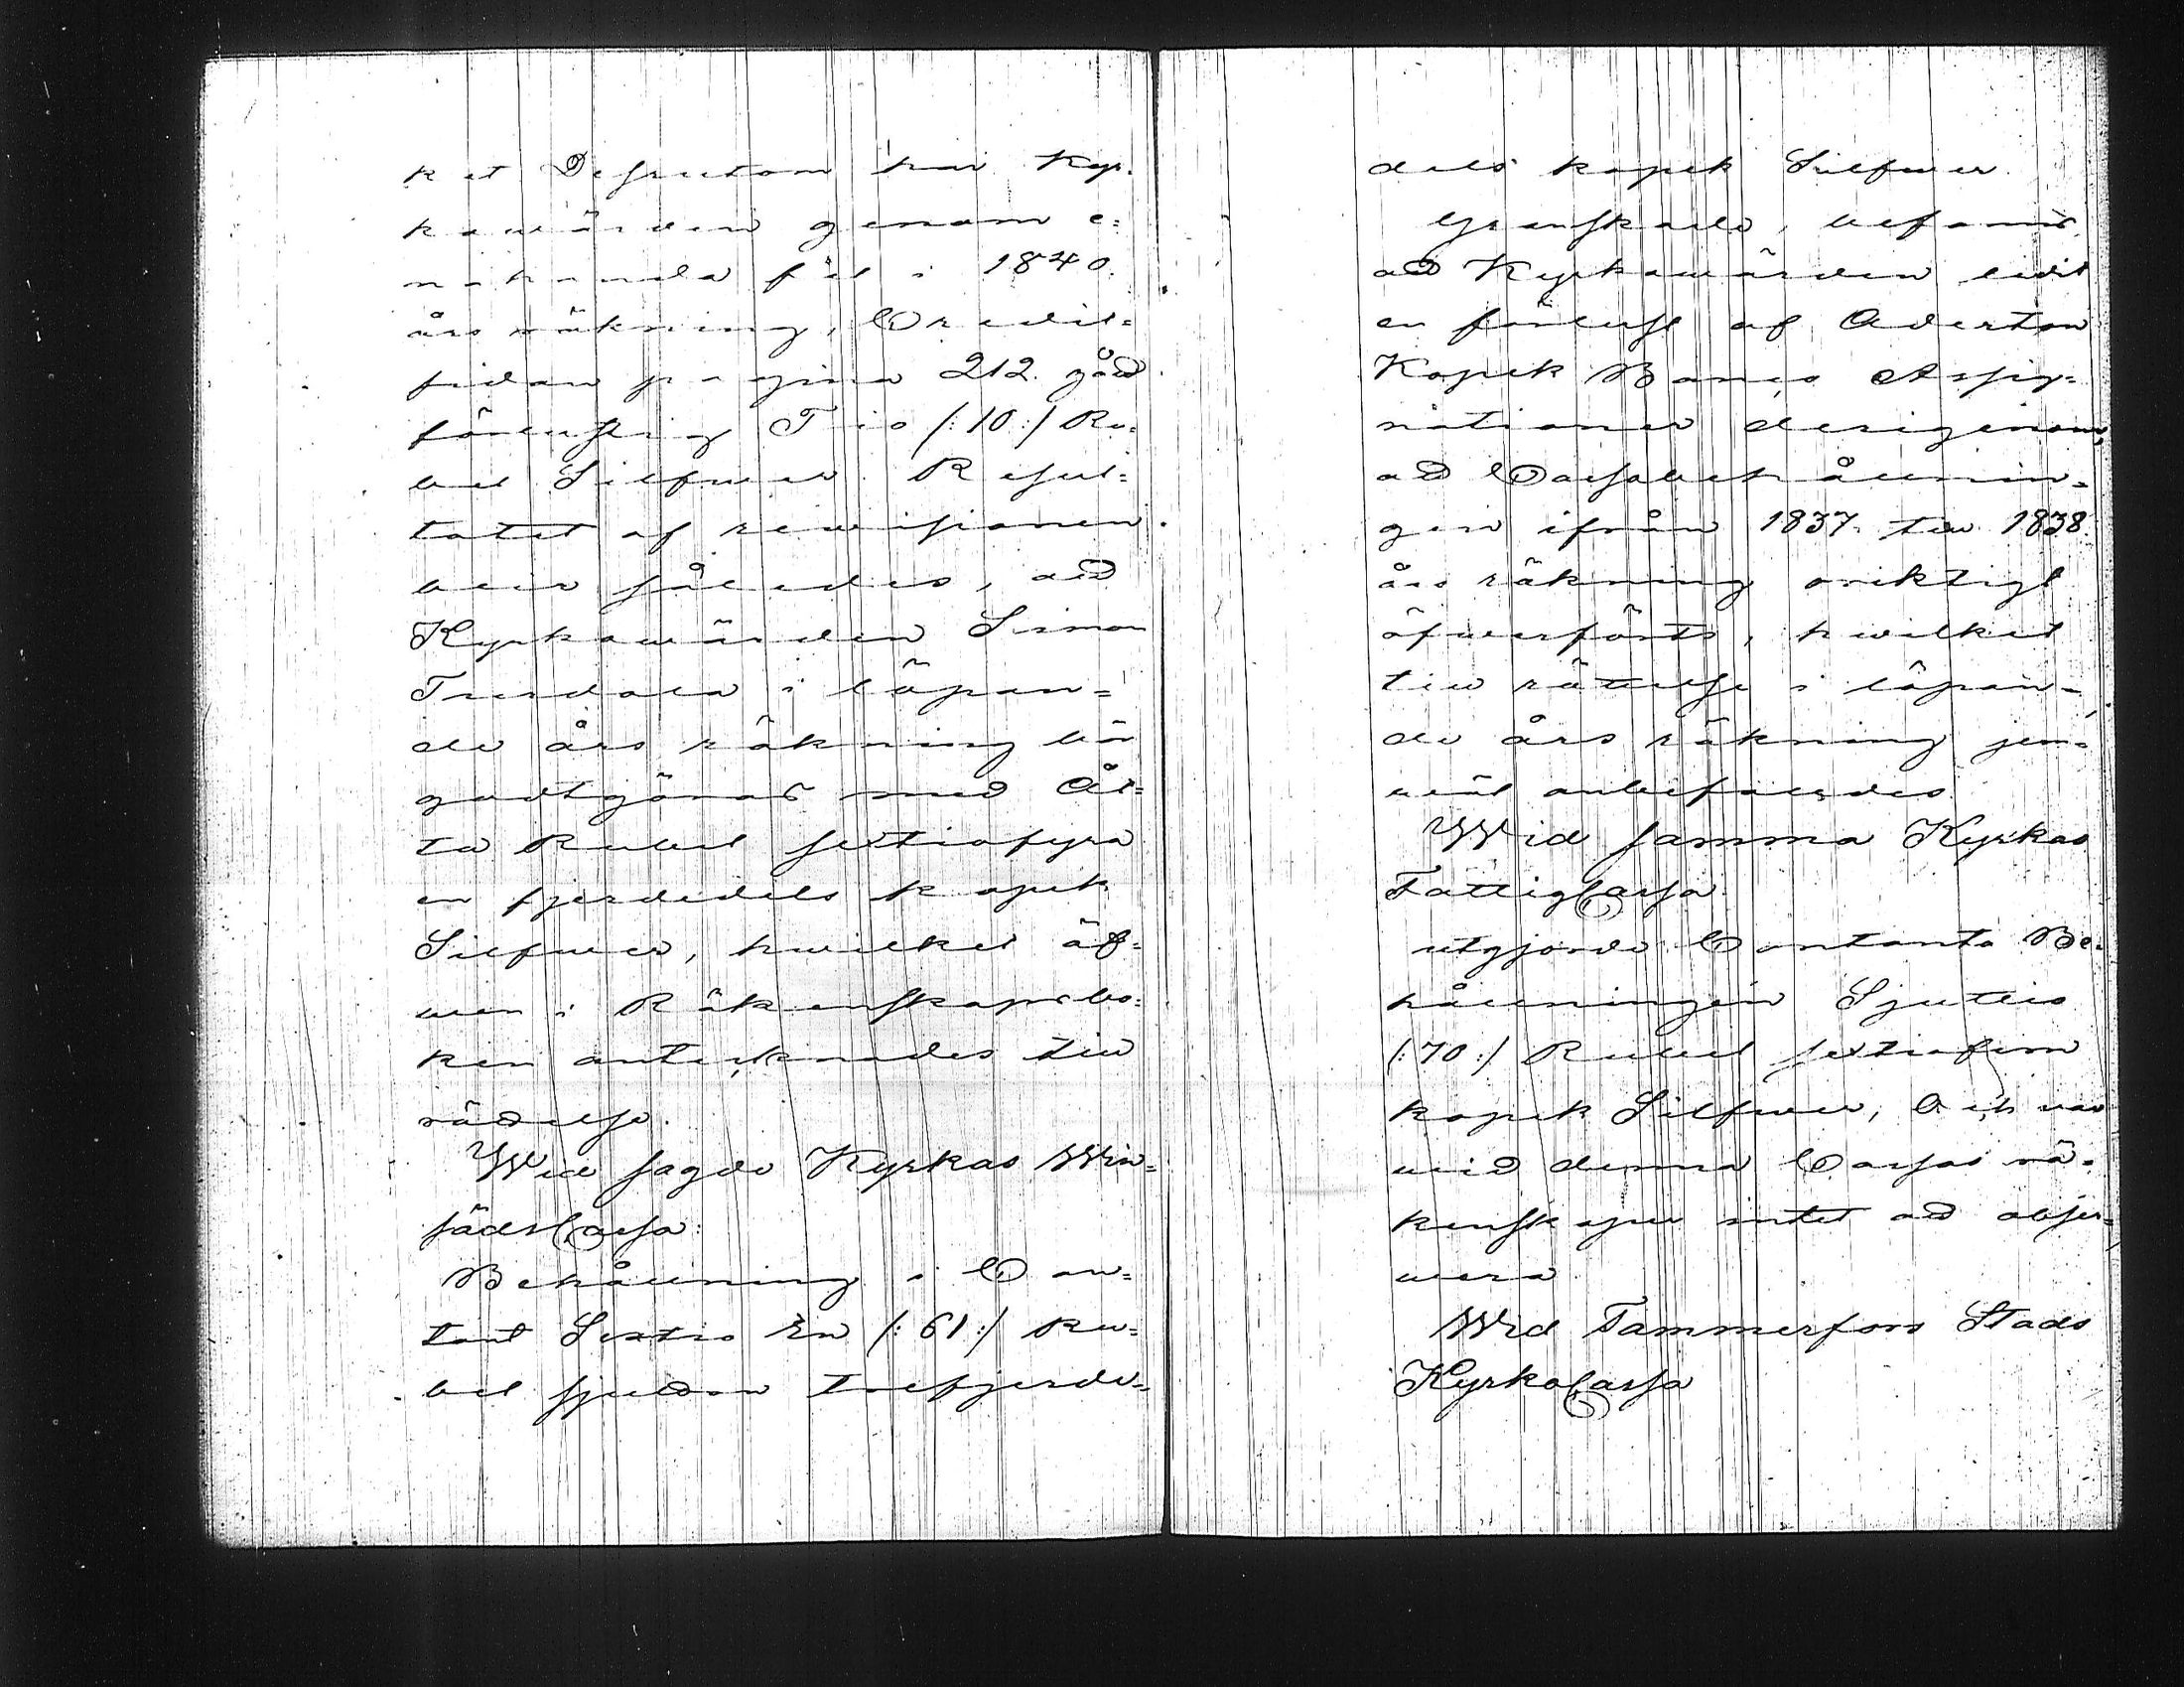 ket Desutom har Kyr-
kowärden genom e=
nahanda fel i 1840.
års räkning, Credit=
sidan pagina 212. gåd
förlustig Tio /:10:/ Ru=
bel Silfwer. Resul=
tatet af revisionen
blir således, ad
Kyrkowärden Simon
Tusdala i löpan=
de års räkning bör
godtgöras med Åt=
ta Rubel sextiofyra
en fjerdedels kopek
Silfwer, hwilket äf=
wen i Räkenskapsbo=
ken antecknades till
rädelse.
Wid sagde Kyrkas Win=
sädsCassa:
Behållning i Con=
tant Sextio En /:61:/ Ru=
bel sjutton trefjerde=
dels kopek Silfwer.
Granskade, befans
ad Kyrkowärden lidit
en förlust af Aderton
Kopek Banco Assig=
nationer derigenom,
ad Cassabehållnin=
gen ifrån 1837. till 1838.
års räkning oriktigt
öfwerförts, hwilket
till rättelse i löpan=
de års räkning jem=
wäl anbefaldes.
Wid samma Kyrkas
FattigCassa
utgjorde Contanta Be=
hållningen Sjuttio
/:70:/ Rubel sextiofem
kopek Silfwer, Och war
wid denna Cassas rä=
kenskaper intet ad obser=
wera.
Wid Tammerfors Stads
KyrkoCassa